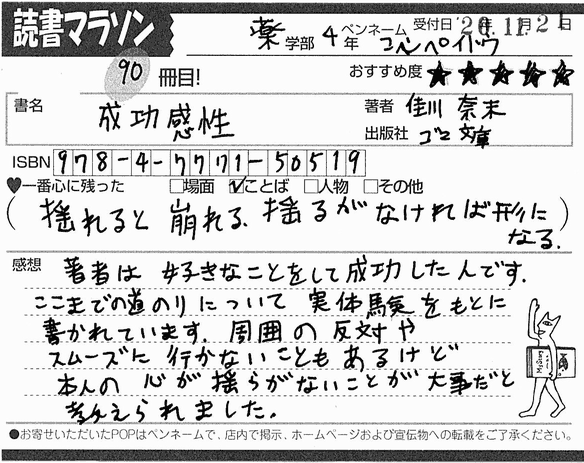 読書マラソン
薬学部 4年 ペンネーム コンペイトウ 受付日 '20年11月21日
90冊目!
おすすめ度 ★★★★★
書名 成功感性
著者 佳川 奈未
出版社 ゴマ文庫
ISBN 978-4-7771-50519
♥一番心に残った □場面 ☑ことば □人物 □その他
(揺れると崩れる、揺るがなければ形に
なる。)
感想 著者は 好きなことをして成功したんです。
ここまでの道のりについて 実体験をもとに
書かれています。周囲の反対や
スムーズに行かないこともあるけど
本人の 心が揺らがないことが大事だと
考えられました。
●お寄せいただいたPOPはペンネームで、店内で掲示、ホームページおよび宣伝物への転載をご了承ください。